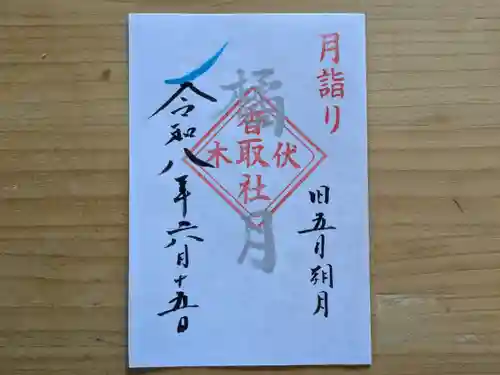 月詣り
旧五月朔月
橘月
香取社
木伏
令和八年六月十五日